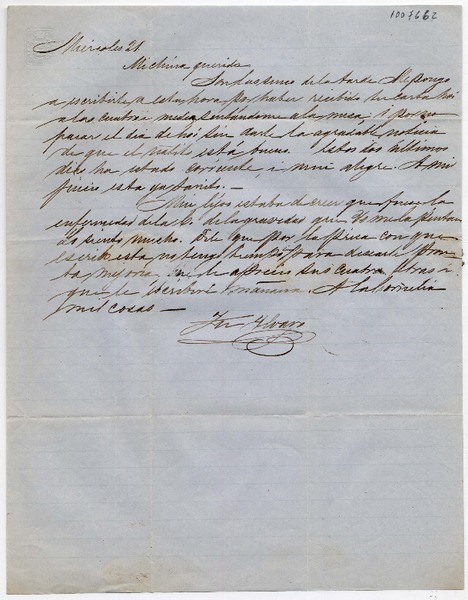 1007662
Miércoles 21
Mi china querida
Son las cinco de la tarde. Me pongo
a escribirte a esta hora por haber recibido tu carta hoi
a las cuatro i media sentándome a la mesa, i por no
pasar el dia de hoi sin darte la agradable noticia
de que el está bueno. Estos dos últimos
dias ha estado corriente, i mui alegre. A mi
juicio esta ya sano.
Mui lejos estaba de creer que fuese la
enfermedad de la de la gravedad que tu me la pintas.
Lo siento mucho. Dile que por la prisa con que
escribo esta no tengo tiempo para desearle pron-
ta mejoria que le aprecio sus cuatro letras i
que le escribiré mañana. A la Cornelia
mil cosas
Tu Alvaro